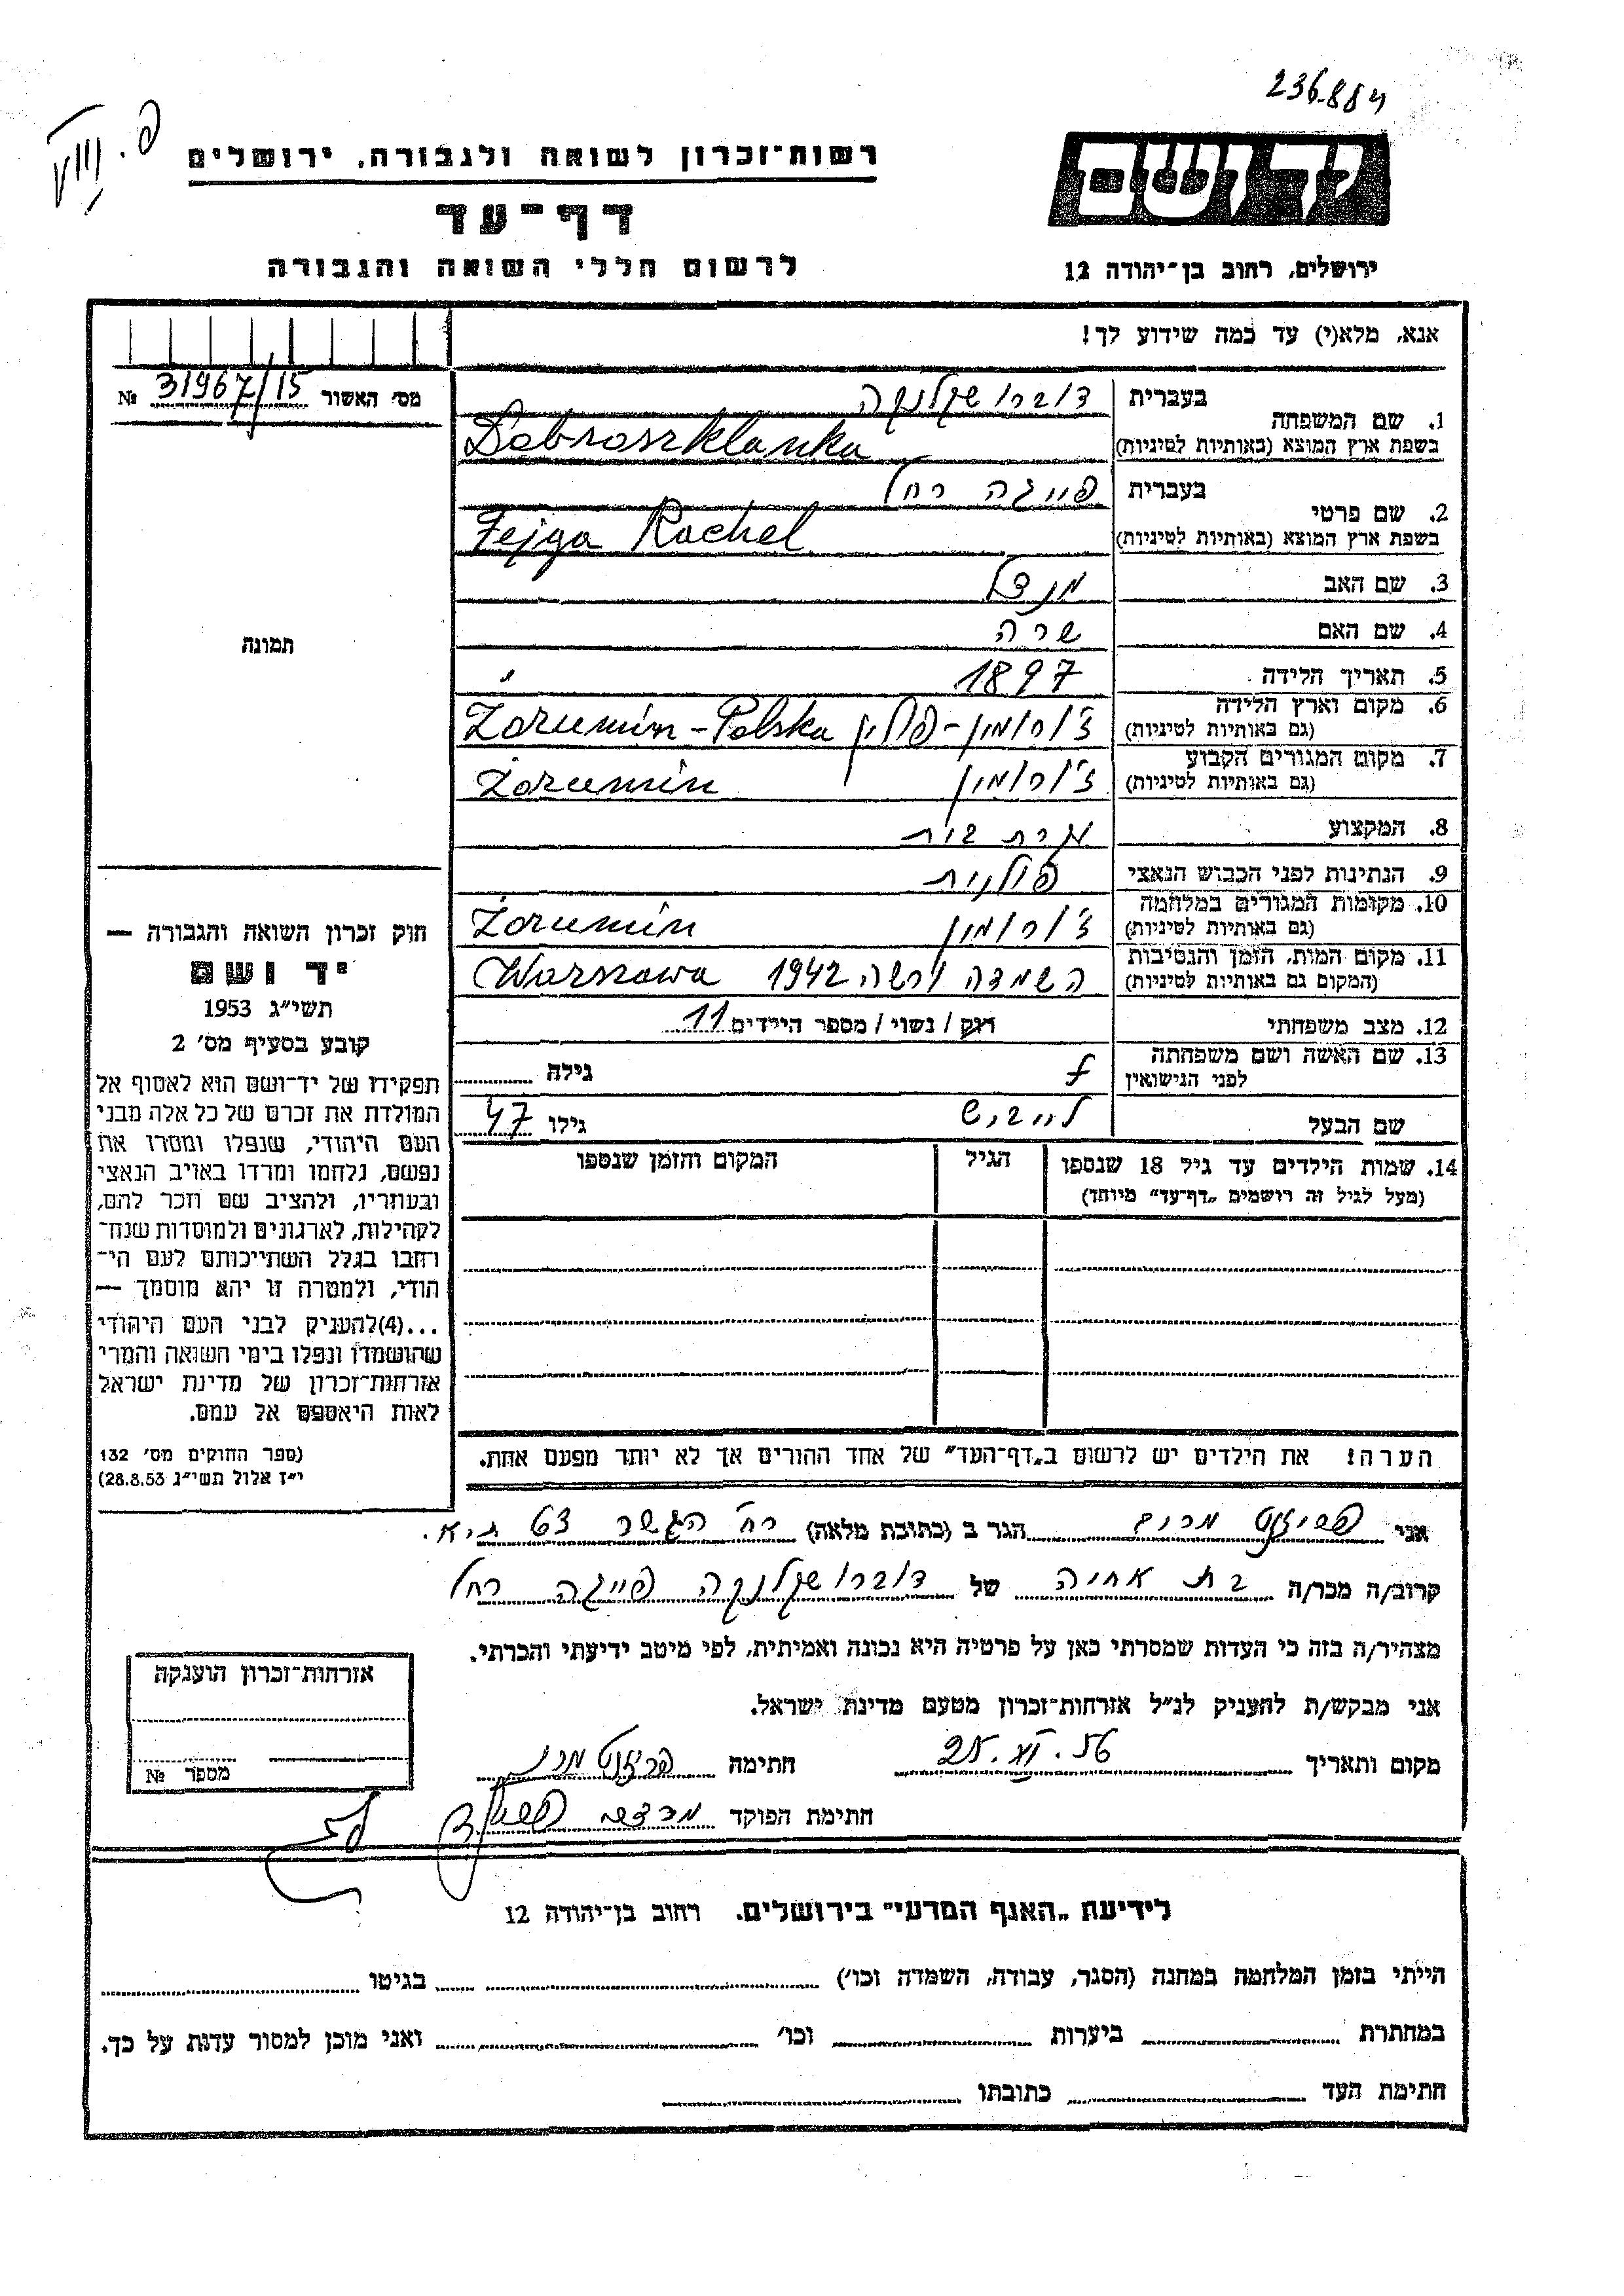 236.884
פ. VIII
רשות־זכרון לשואה ולגבורה, ירושלים
דף־עד
לרשום חללי השואה והגבורה
יד ושם
ירושלים, רחוב בן־יהודה 12
אנא, מלא(י) עד כמה שידוע לך!
מס׳ האשור 31967/15 №
תמונה
1. שם המשפחה
בעברית דוברושקלנקה
בשפת ארץ המוצא (באותיות לטיניות) Dobroszklanka
2. שם פרטי
בעברית פייגה רחל
בשפת ארץ המוצא (באותיות לטיניות) Fejga Rachel
3. שם האב מנדל
4. שם האם שרה
5. תאריך הלידה 1897
6. מקום וארץ הלידה
(גם באותיות לטיניות) ז׳ורומין - פולין Żorumin - Polska
7. מקום המגורים הקבוע
(גם באותיות לטיניות) ז׳ורומין Żorumin
8. המקצוע עקרת בית
9. הנתינות לפני הכבוש הנאצי פולנית
10. מקומות המגורים במלחמה
(גם באותיות לטיניות) ז׳ורומין Żorumin
11. מקום המות, הזמן והנסיבות
(המקום גם באותיות לטיניות) השמדה ורשה 1942 Warszawa
12. מצב משפחתי רוק / נשוי / מספר הילדים 11
13. שם האשה ושם משפחתה
לפני הנישואין גילה
שם הבעל לייביש גילו 47
14. שמות הילדים עד גיל 18 שנספו
(מעל לגיל זה רושמים „דף־עד״ מיוחד)
הגיל
המקום והזמן שנספו
הערה! את הילדים יש לרשום ב„דף־העד״ של אחד ההורים אך לא יותר מפעם אחת.
חוק זכרון השואה והגבורה —
יד ושם
תשי״ג 1953
קובע בסעיף מס׳ 2
תפקידו של יד־ושם הוא לאסוף אל
המולדת את זכרם של כל אלה מבני
העם היהודי, שנפלו ומסרו את
נפשם, נלחמו ומרדו באויב הנאצי
ובעוזריו, ולהציב שם וזכר להם,
לקהילות, לארגונים ולמוסדות שנח־
רחבו בגלל השתייכותם לעם הי־
הודי, ולמטרה זו יהא מוסמך —
...(4)להעניק לבני העם היהודי
שהושמדו ונפלו בימי השואה והמרי
אזרחות־זכרון של מדינת ישראל
לאות היאספם אל עמם.
(ספר החוקים מס׳ 132
י״ז אלול תשי״ג 28.8.53)
אני הגר ב (כתובת מלאה) רח׳ הגשר ת״א.
קרוב/ה מכר/ה בת אחיה של דוברושקלנקה פייגה רחל
מצהיר/ה בזה כי העדות שמסרתי כאן על פרטיה היא נכונה ואמיתית, לפי מיטב ידיעתי והכרתי.
אני מבקש/ת להעניק לנ״ל אזרחות־זכרון מטעם מדינת ישראל.
מקום ותאריך 25.VI.56 חתימה
חתימת הפוקד
אזרחות־זכרון הוענקה
מספר №
לידיעת „האגף המדעי״ בירושלים. רחוב בן־יהודה 12
הייתי בזמן המלחמה במחנה (הסגר, עבודה, השמדה וכו׳) בגיטו
במחתרת ביערות וכו׳ ואני מוכן למסור עדות על כך.
חתימת העד כתובתו